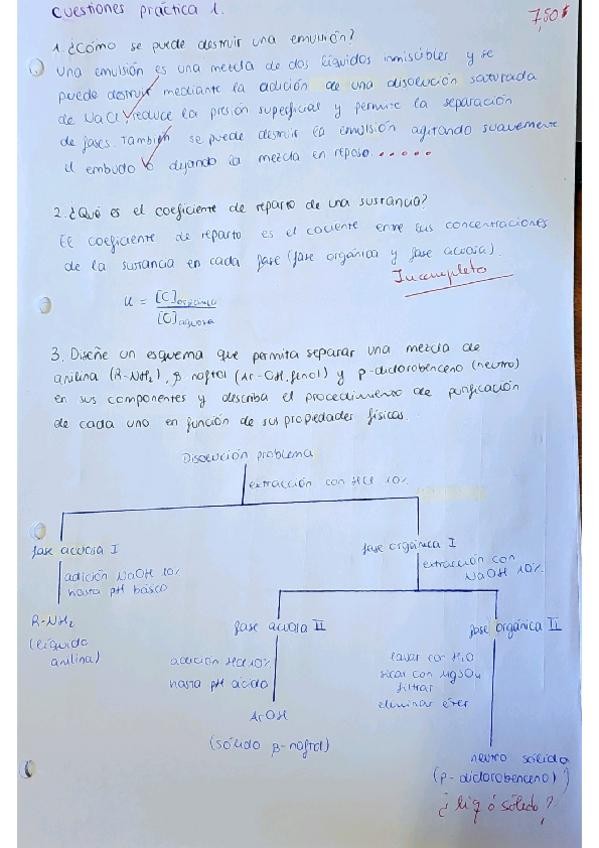 Cuestiones práctica 1.
7,50
1. ¿Cómo se puede destruir una emulsión?
Una emulsión es una mezcla de dos líquidos inmiscibles y se
puede destruir mediante la adición de una disolución saturada
de NaCl, reduce la presión superficial y permite la separación
de fases. También se puede destruir la emulsión agitando suavemente
el embudo o dejando la mezcla en reposo.....
2. ¿Qué es el coeficiente de reparto de una sustancia?
El coeficiente de reparto es el cociente entre las concentraciones
de la sustancia en cada fase (fase orgánica y fase acuosa).
Incompleto
K = [C]orgánica / [C]acuosa
3. Diseñe un esquema que permita separar una mezcla de
anilina (R-NH2), β naftol (Ar-OH, fenol) y p-diclorobenceno (neutro)
en sus componentes y describa el procedimiento de purificación
de cada uno en función de sus propiedades físicas.
Disolución problema
extracción con HCl 10%
fase acuosa I
fase orgánica I
adición NaOH 10%
hasta pH básico
extracción con
NaOH 10%
R-NH2
(líquido
anilina)
fase acuosa II
fase orgánica II
adición HCl 10%
hasta pH ácido
lavar con H2O
secar con MgSO4
filtrar
eliminar éter
ArOH
(sólido β-naftol)
neutro sólido
(p-diclorobenceno)
¿líq ó sólido?